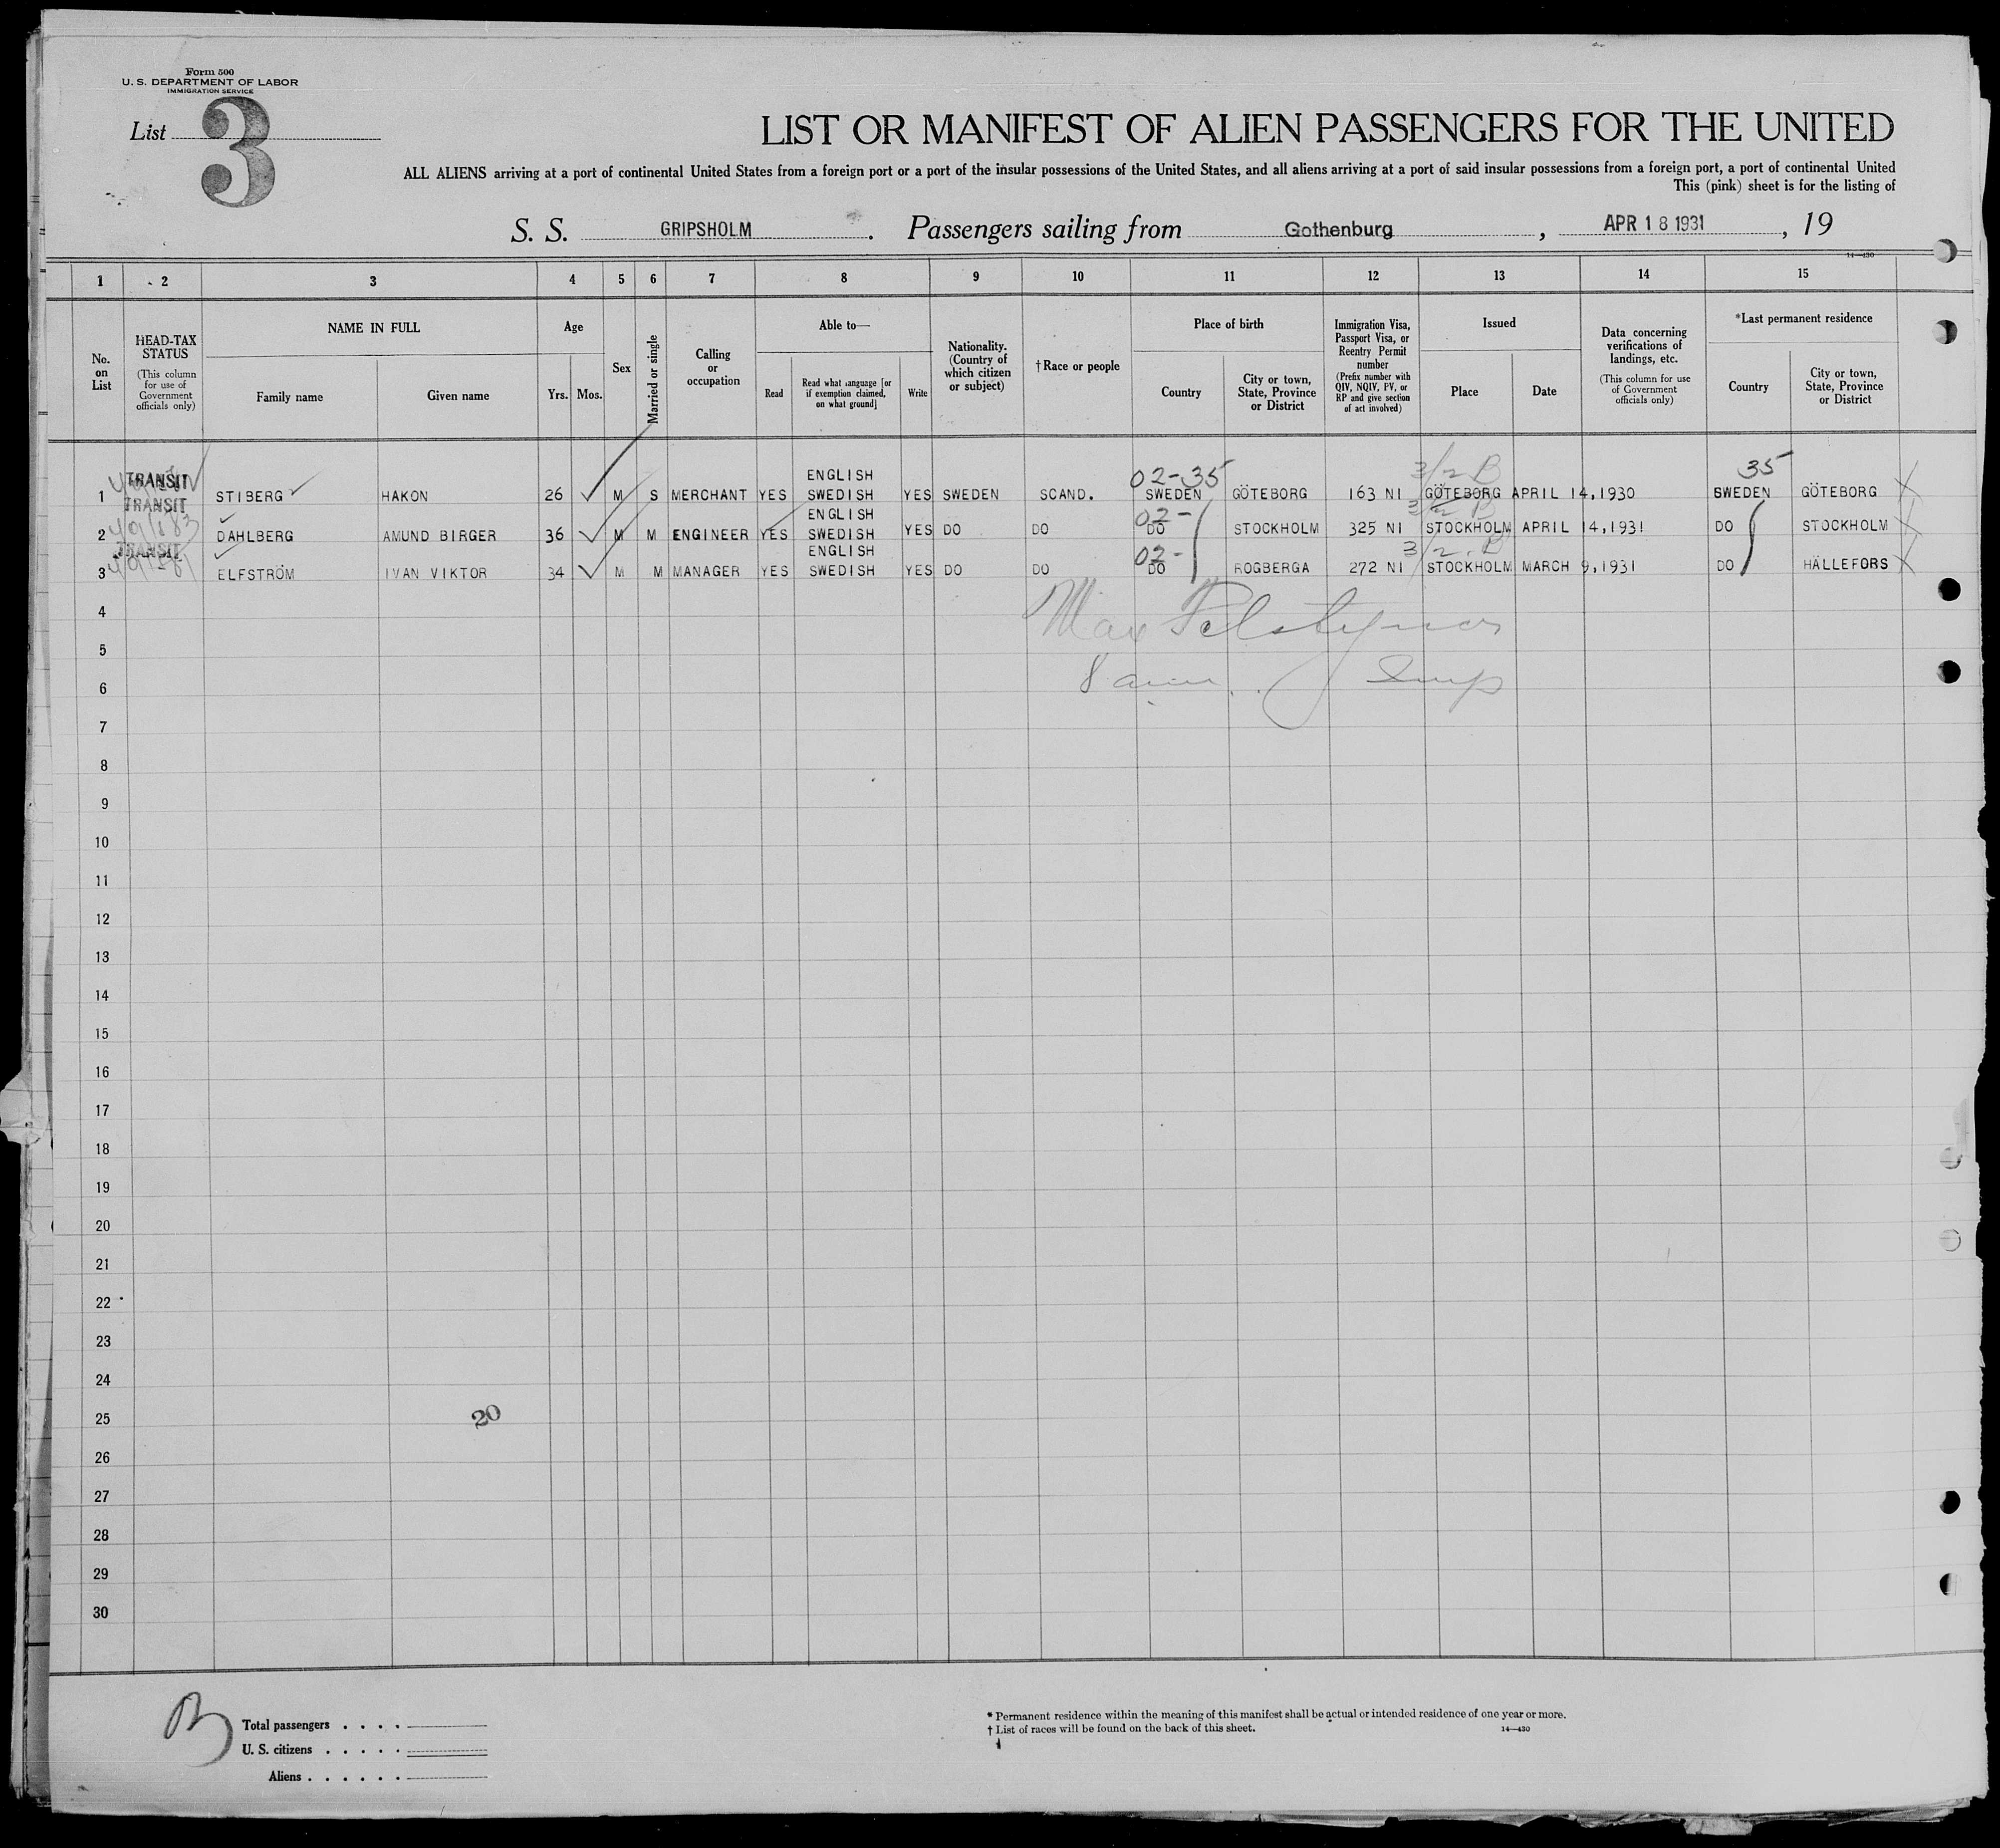 Form 500
U. S. DEPARTMENT OF LABOR
IMMIGRATION SERVICE
List 3
LIST OR MANIFEST OF ALIEN PASSENGERS FOR THE UNITED
ALL ALIENS arriving at a port of continental United States from a foreign port or a port of the insular possessions of the United States, and all aliens arriving at a port of said insular possessions from a foreign port, a port of continental United
This (pink) sheet is for the listing of
S. S. GRIPSHOLM. Passengers sailing from Gothenburg, APR 18 1931, 19
14—430
1 2 3 4 5 6 7 8 9 10 11 12 13 14 15
No. on List
HEAD-TAX STATUS (This column for use of Government officials only)
NAME IN FULL
Family name Given name
Age
Yrs. Mos.
Sex
Married or single
Calling or occupation
Able to—
Read Read what language [or if exemption claimed, on what ground] Write
Nationality. (Country of which citizen or subject)
†Race or people
Place of birth
Country City or town, State, Province or District
Immigration Visa, Passport Visa, or Reentry Permit number (Prefix number with QIV, NQIV, PV, or RP and give section of act involved)
Issued
Place Date
Data concerning verifications of landings, etc. (This column for use of Government officials only)
*Last permanent residence
Country City or town, State, Province or District
TRANSIT ENGLISH 02-35 3/2 B 35
1 STIBERG HAKON 26 M S MERCHANT YES SWEDISH YES SWEDEN SCAND. SWEDEN GÖTEBORG 163 NI GÖTEBORG APRIL 14,1930 SWEDEN GÖTEBORG
TRANSIT ENGLISH 02- 3/2 B
2 DAHLBERG AMUND BIRGER 36 M M ENGINEER YES SWEDISH YES DO DO DO STOCKHOLM 325 NI STOCKHOLM APRIL 14,1931 DO STOCKHOLM
TRANSIT ENGLISH 02- 3/2 B
3 ELFSTRÖM IVAN VIKTOR 34 M M MANAGER YES SWEDISH YES DO DO DO ROGBERGA 272 NI STOCKHOLM MARCH 9,1931 DO HÄLLEFORS
4
5
6
7
8
9
10
11
12
13
14
15
16
17
18
19
20
21
22
23
24
25 20
26
27
28
29
30
B
Total passengers . . . .
U. S. citizens . . . . .
Aliens . . . . . .
* Permanent residence within the meaning of this manifest shall be actual or intended residence of one year or more.
† List of races will be found on the back of this sheet. 14—430